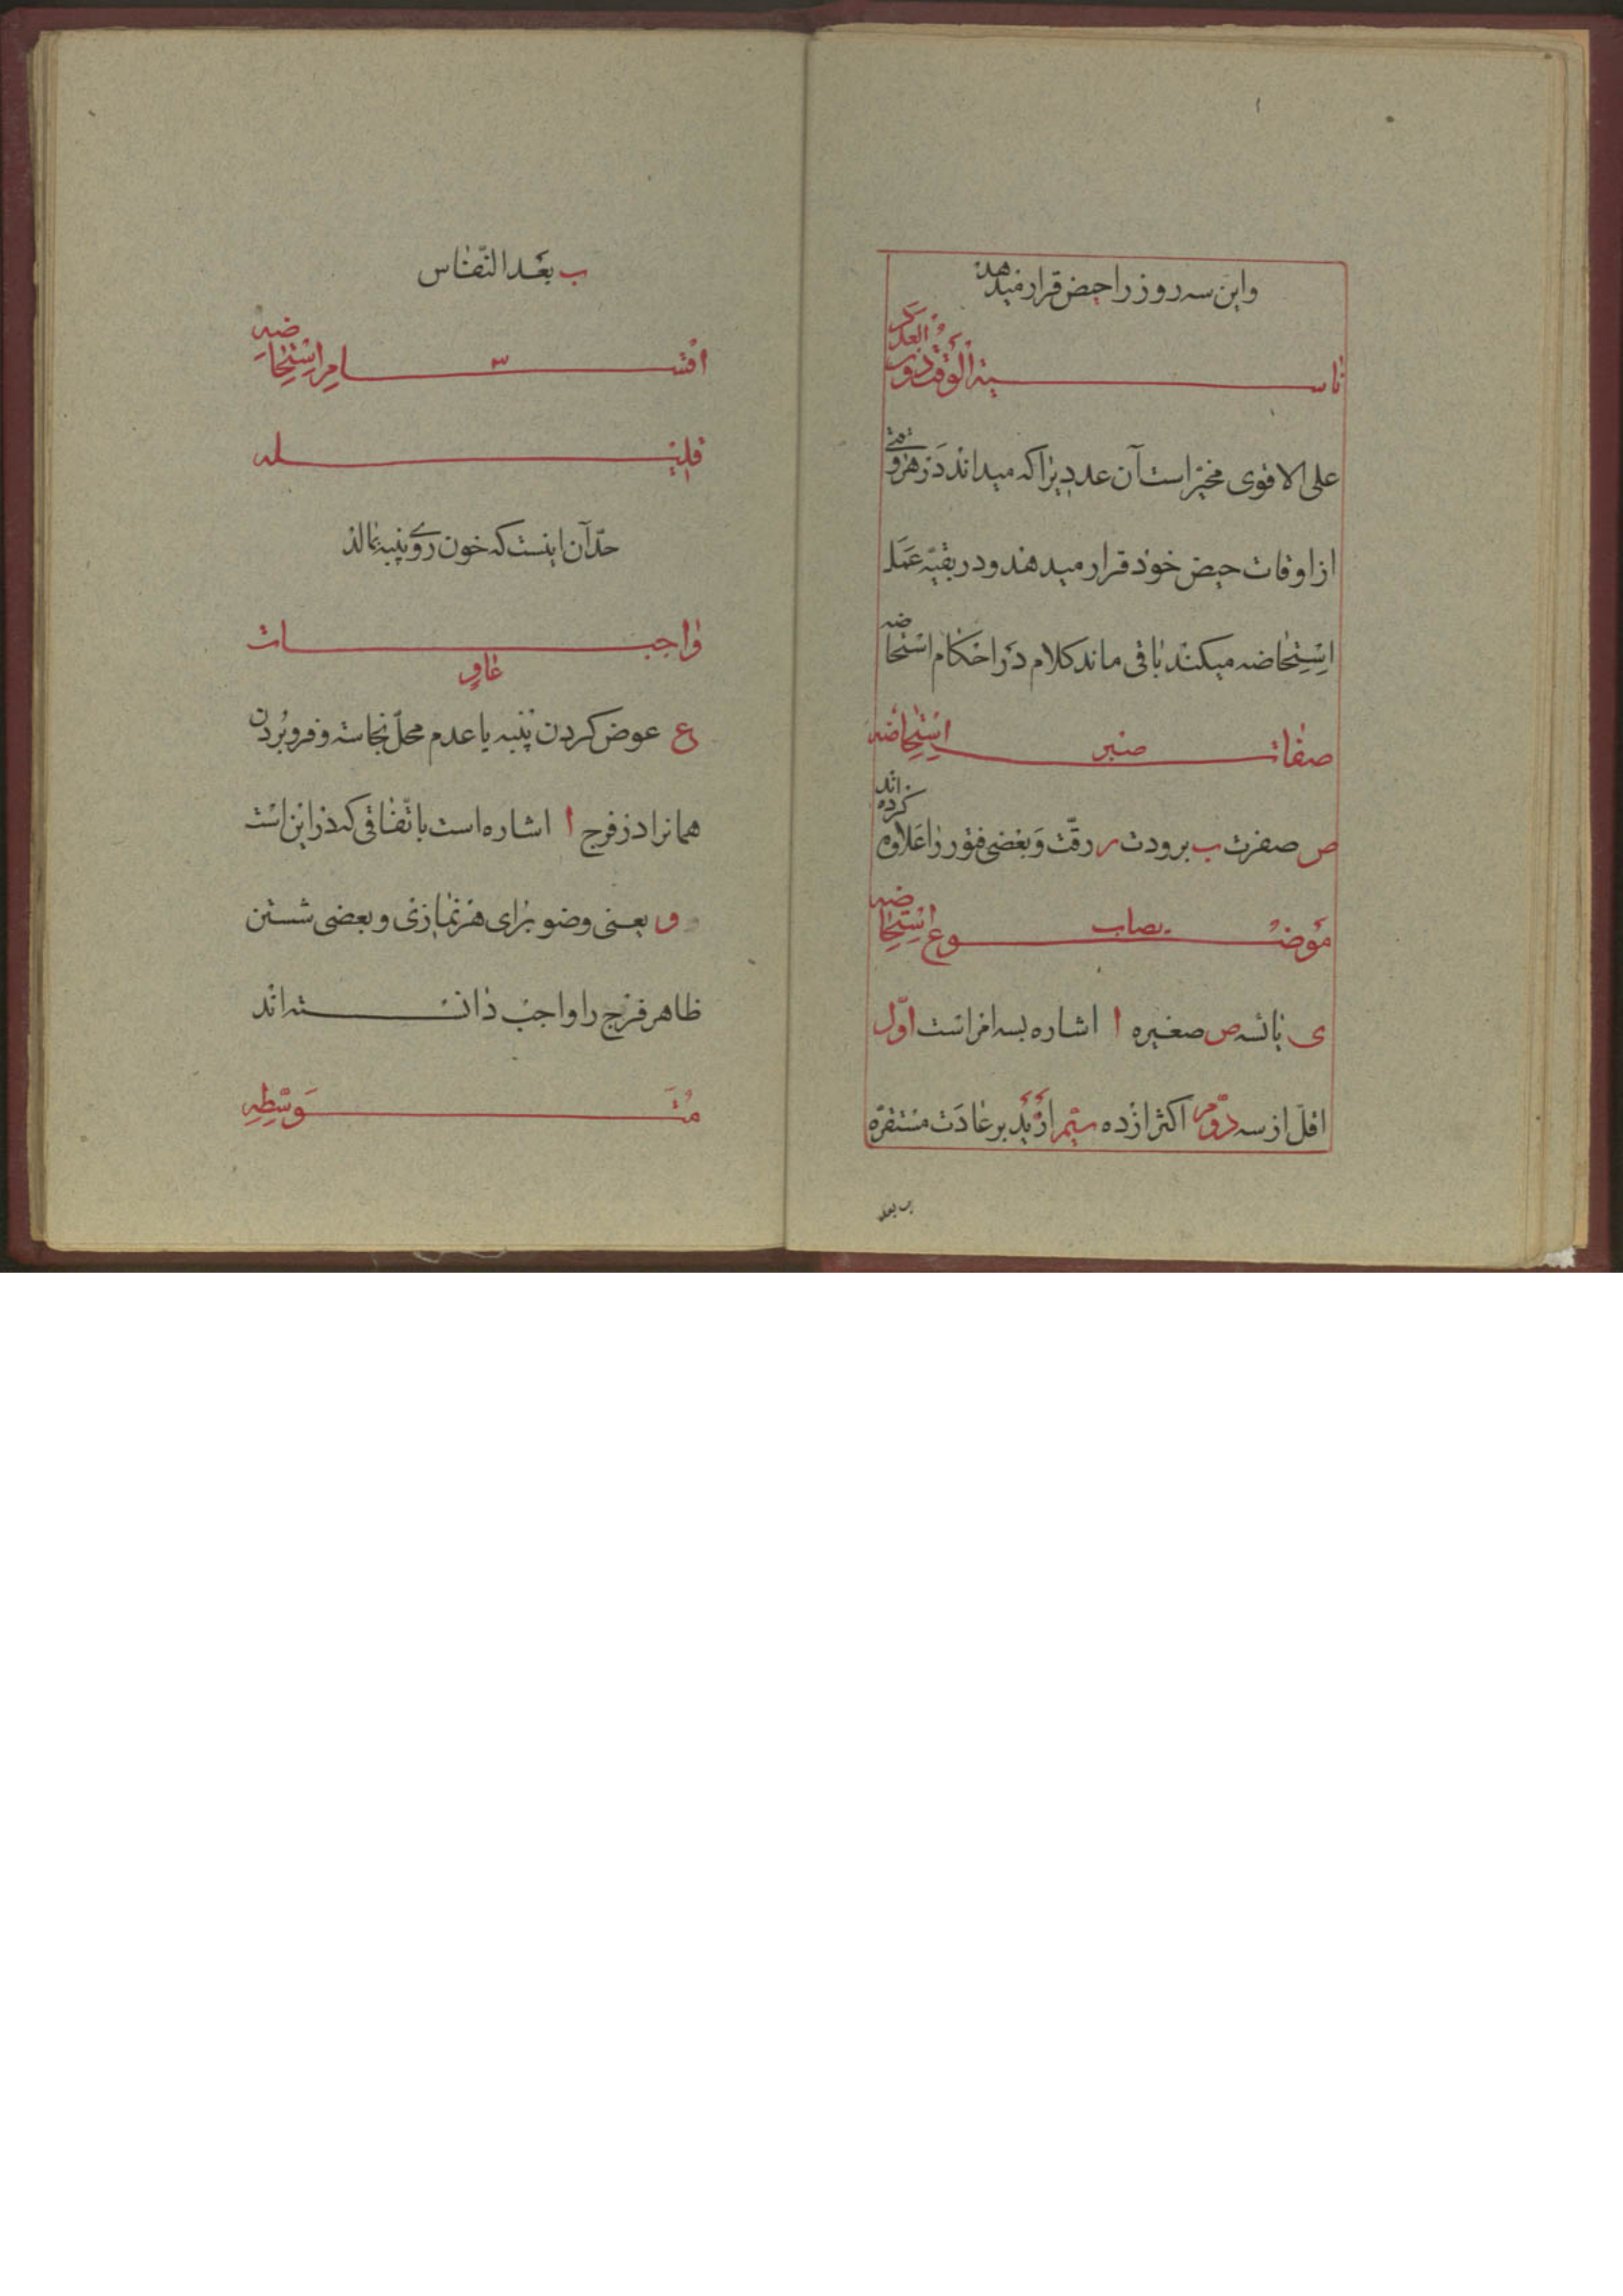 واین سه روز را حیض قرار میدهد
ناسیة الوقت ذوت العدد
علی الاقوی مخیّر است آن عددیرا که میداند در هر وقتی
از اوقات حیض خود قرار میدهند و در بقیّه عمل
استحاضه میکند باقی ماند کلام در احکام استحاضه
صفات صبر استحاضه
ص صفرت ب برودت ر رقّت و بعضی فتور را علاوه کرده اند
موضوع یصاب استحاضه
ی یائسه ص صغیره ا اشاره بسه امر است اوّل
اقلّ از سه دوّم اکثر از ده سیّم ازید بر عادت مستقرّه
ب بعد
ب بعد النّفاس
اقسام استحاضه ۳
قلیله
حدّ آن اینست که خون روی پنبه نمالد
واجبات
عاو
ع عوض کردن پنبه یا عدم محلّ نجاسته و فرو بردن
همانرا در فرج ا اشاره است باتّفاقی که در این است
و یعنی وضو برای هر نمازی و بعضی شستن
ظاهر فرج را واجب دانسته اند
متوسّطه